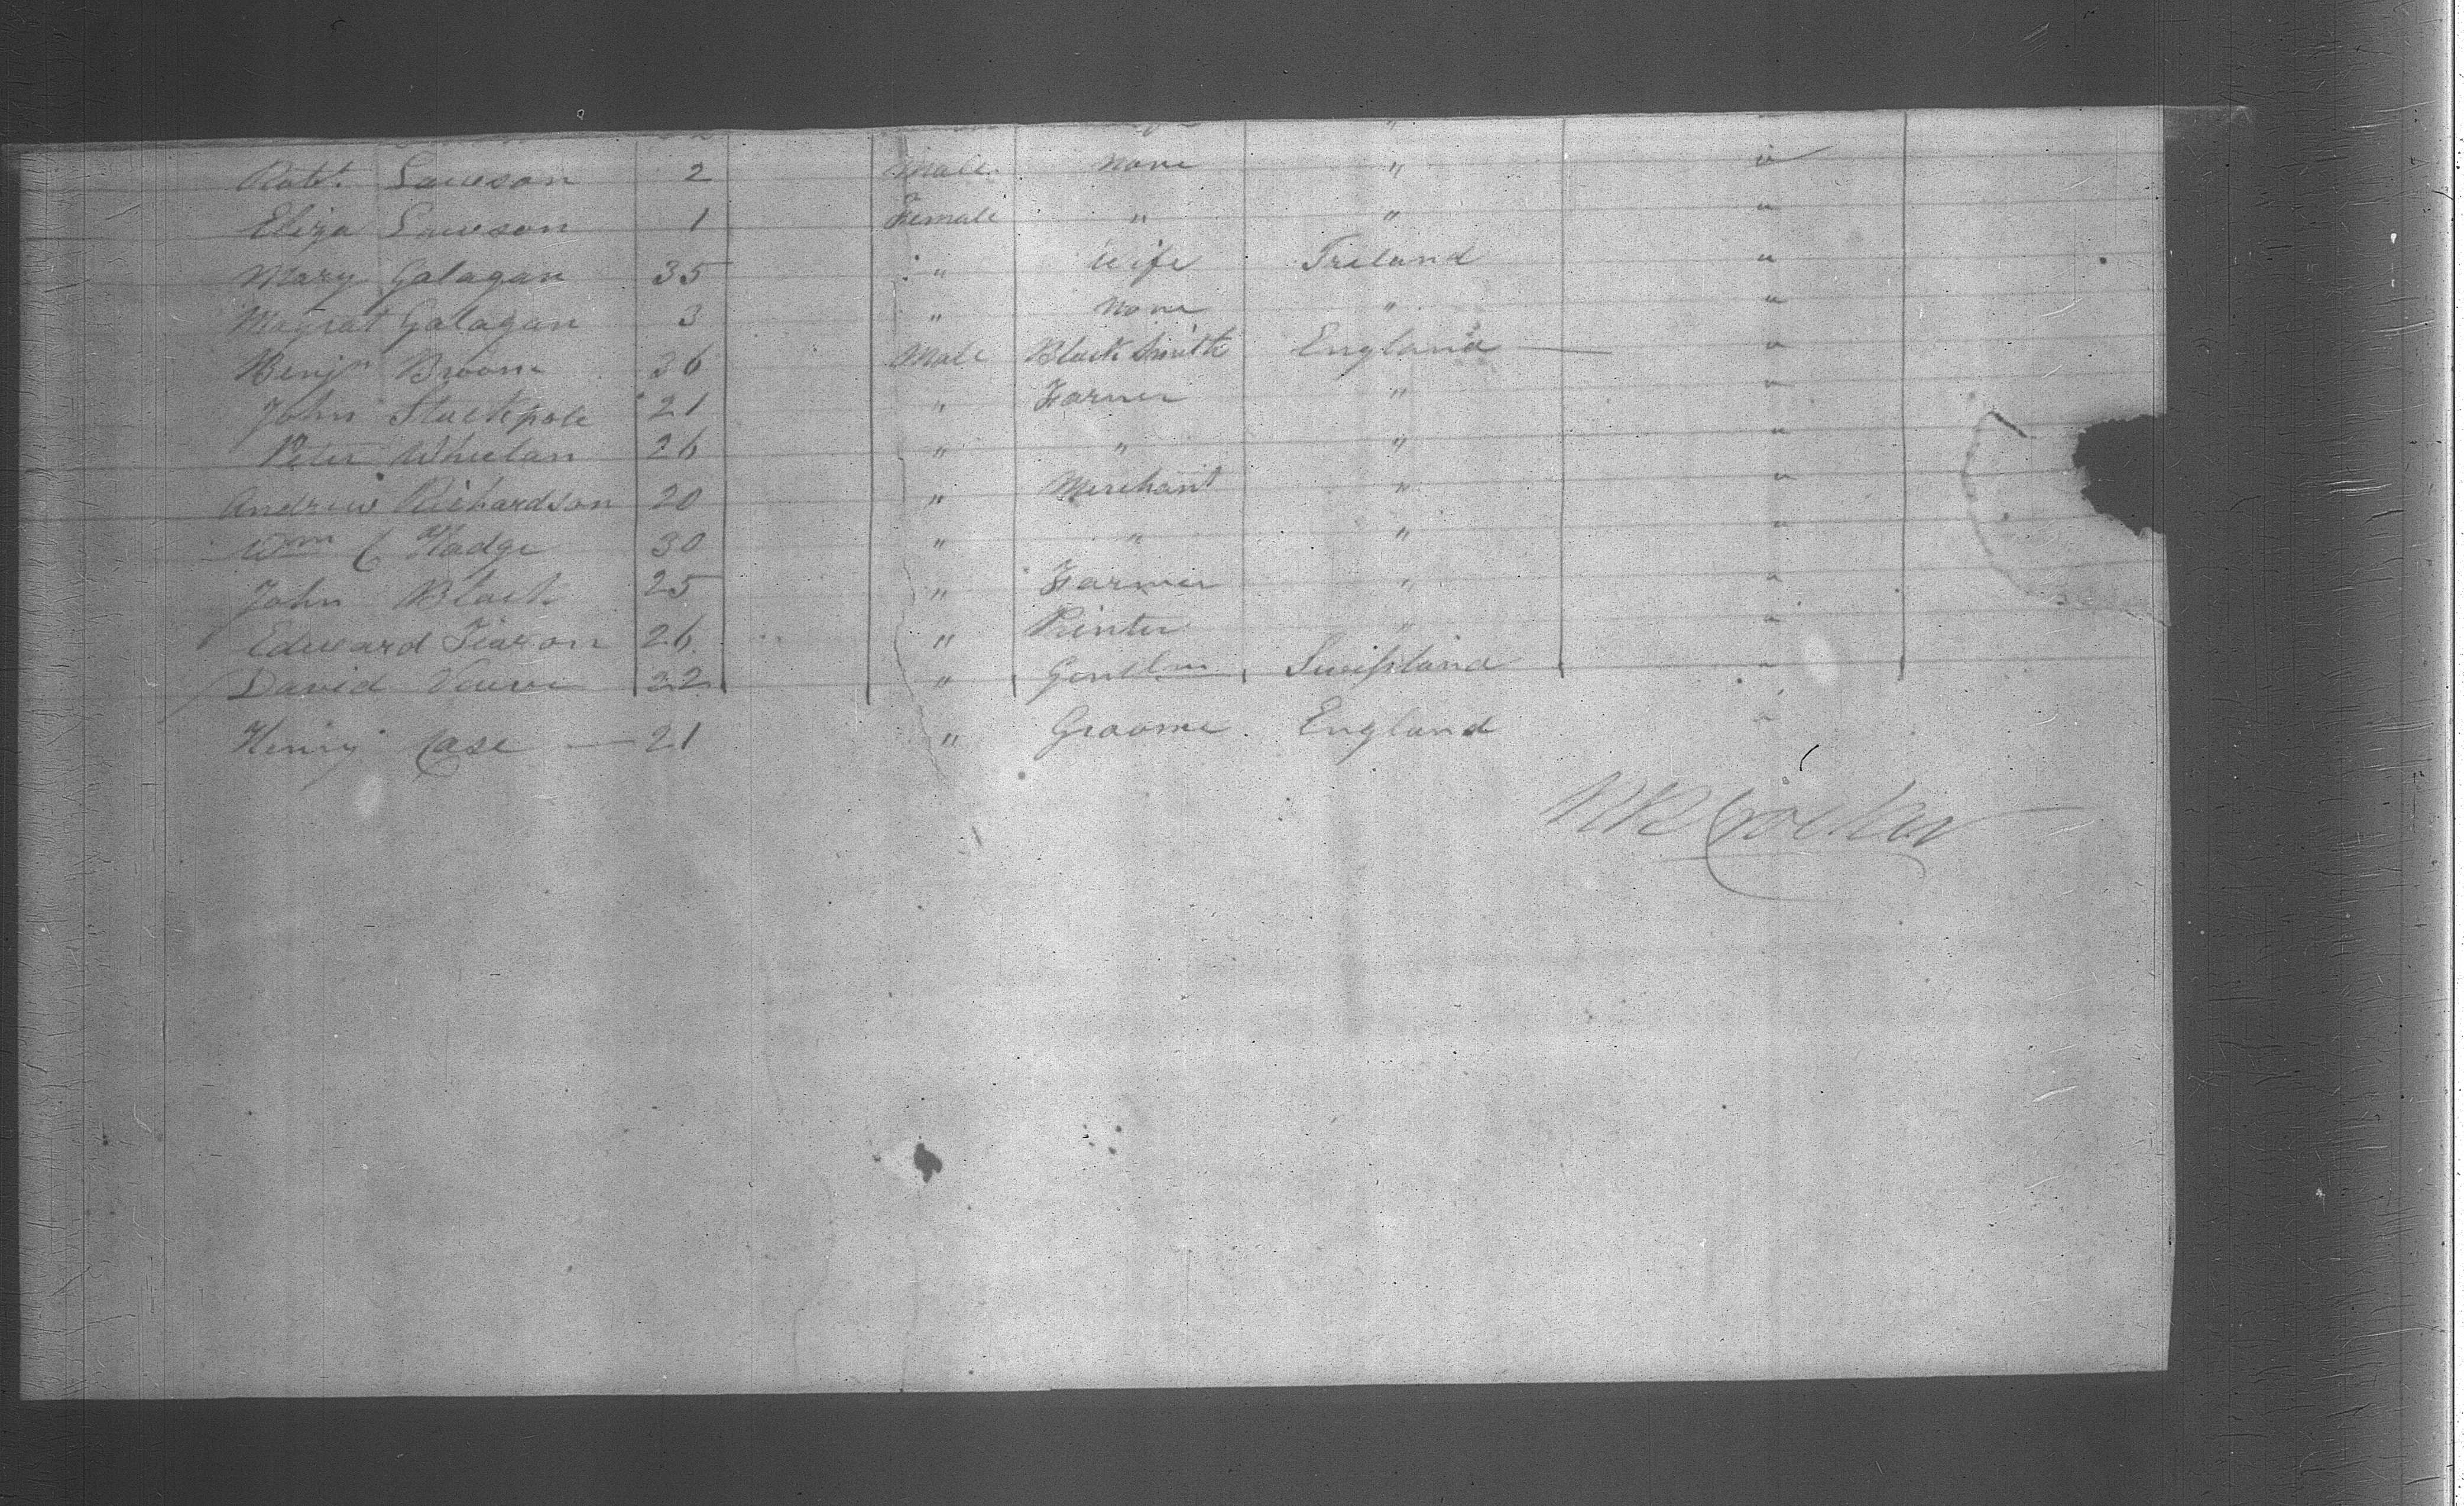 Robt. Lawson 2 Male None " "
Eliza Lawson 1 Female " " "
Mary Galagan 35 " Wife Ireland "
Magrat Galagan 3 " None " "
Benjn Broom 36 Male Black Smith England — "
John Stackpole 21 " Farmer " "
Peter Wheelan 26 " " " "
Andrew Richardson 20 " Merchant " "
Wm C Hadge 30 " " " "
John Black 25 " Farmer " "
Edward 26 " Printer " "
David 22 " Gentlm Swissland "
Henry Case — 21 " Groome England "